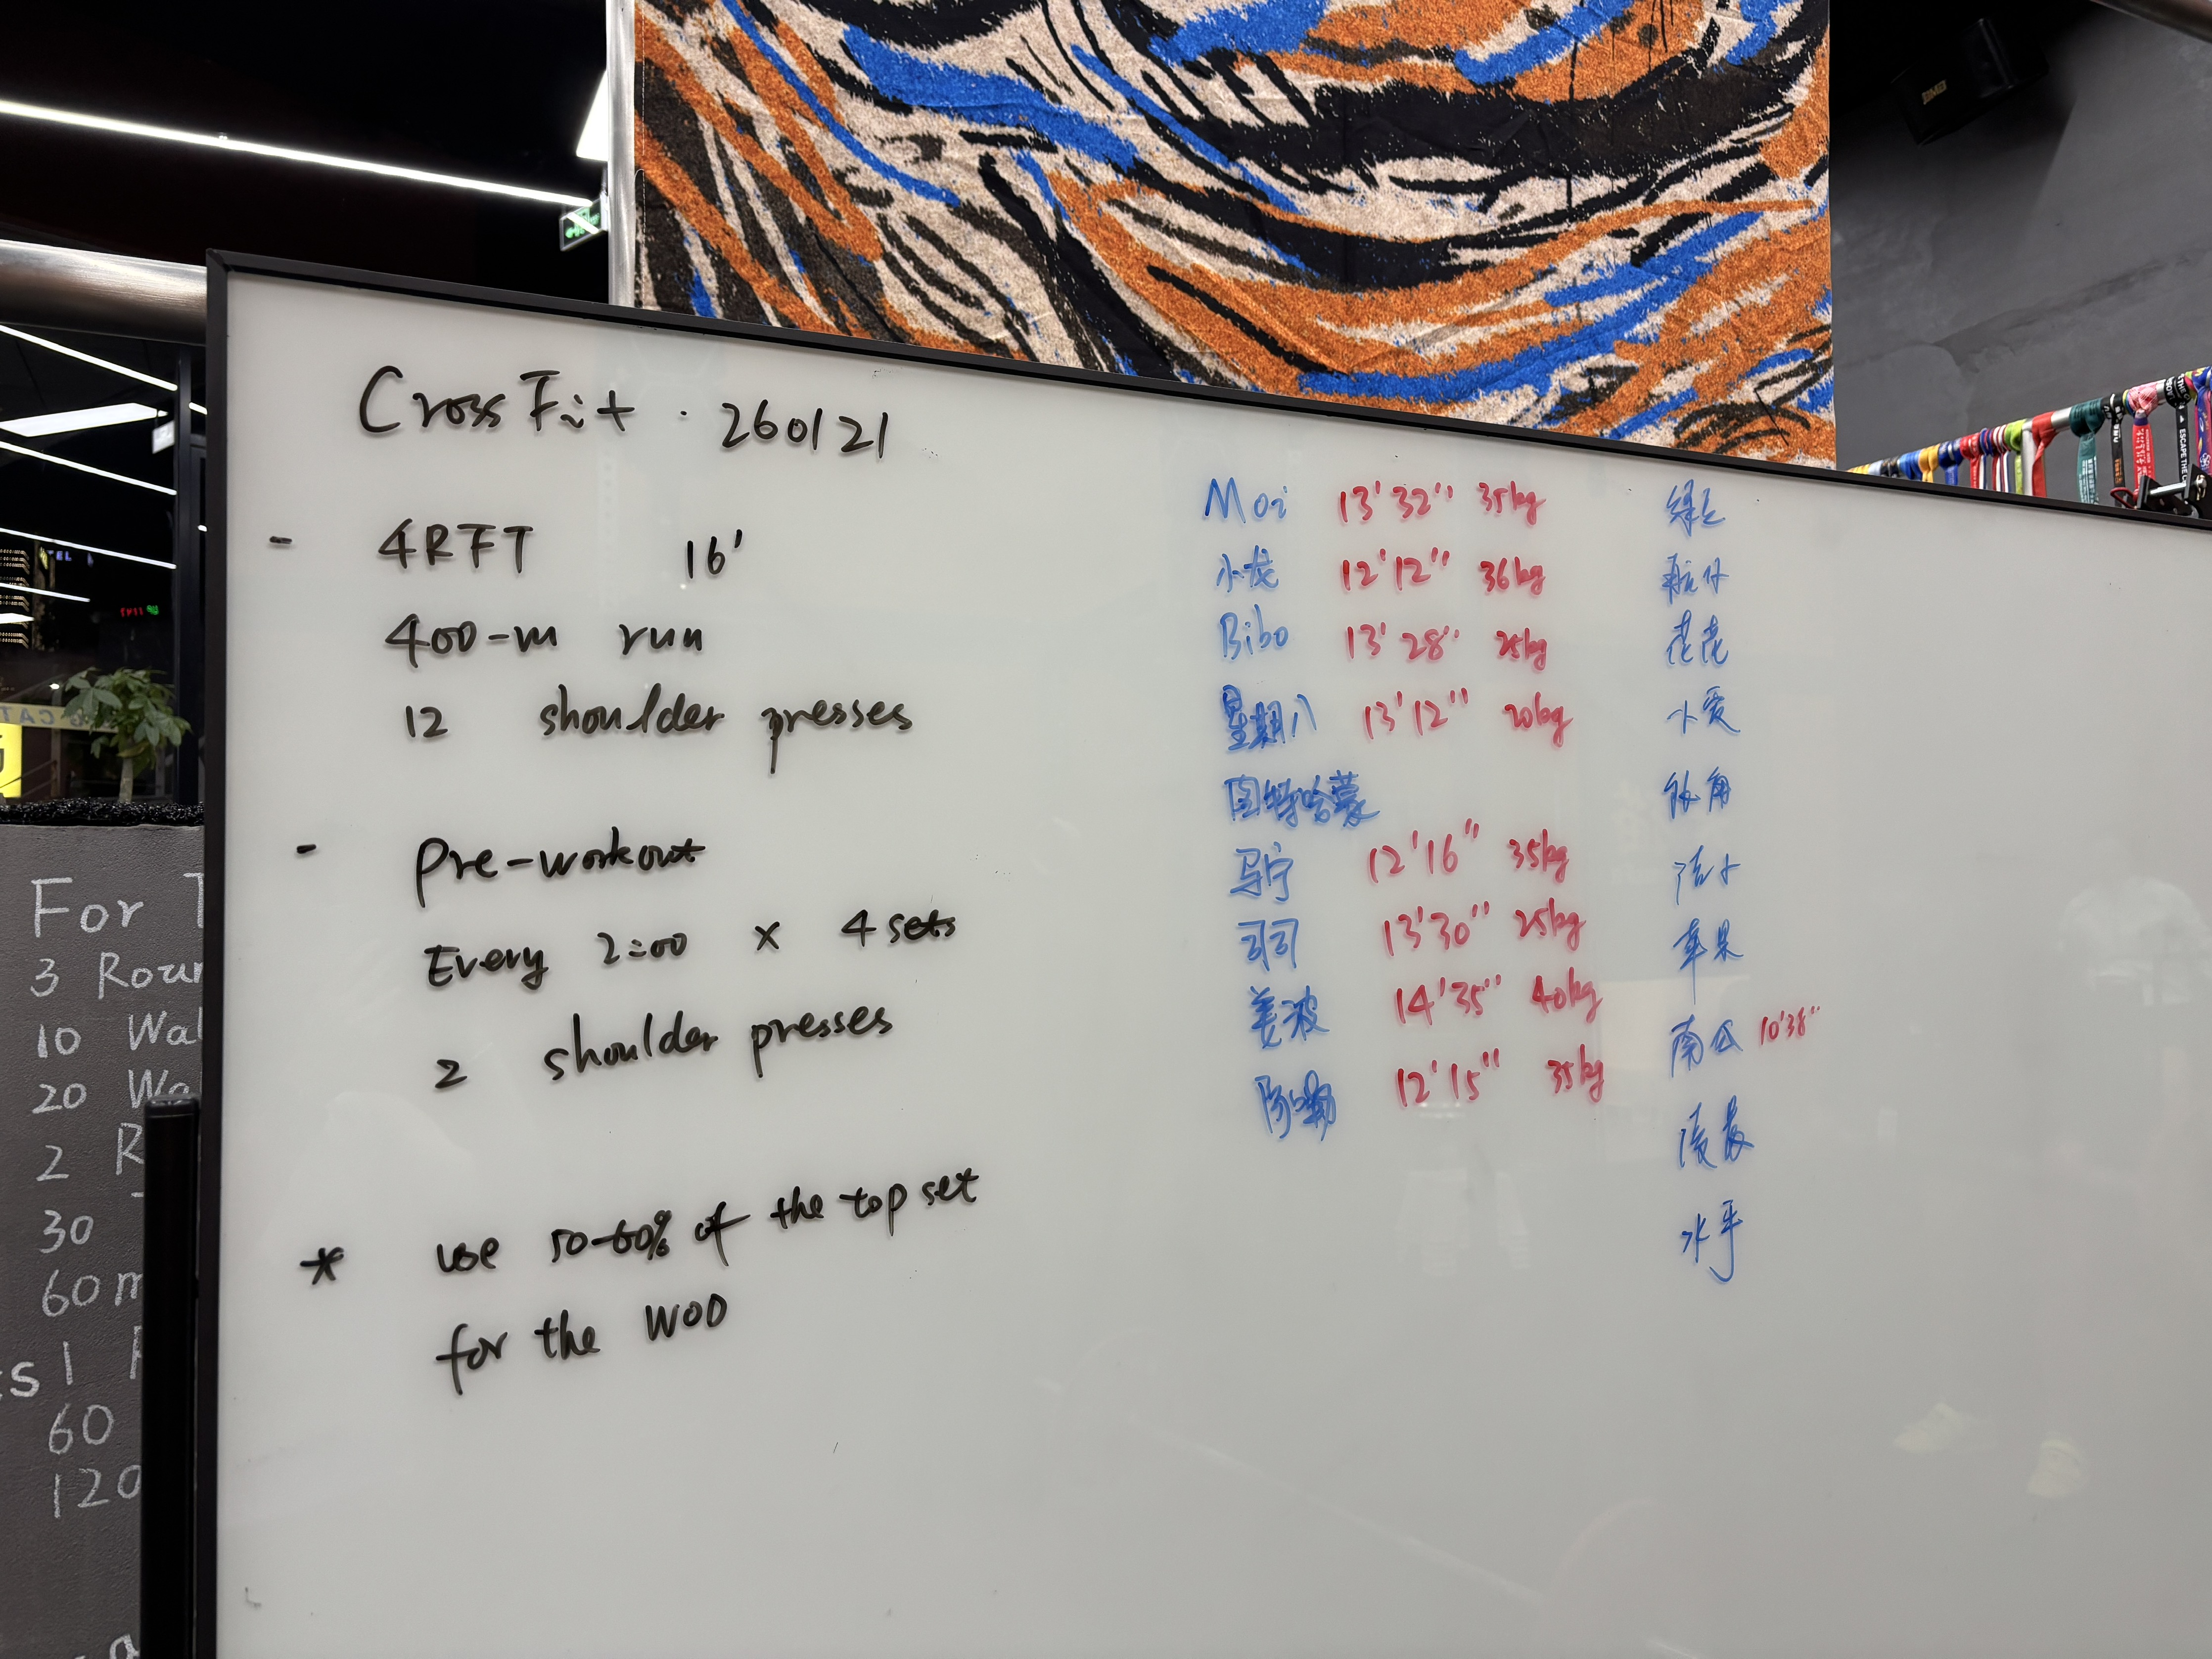 CrossFit · 260121
- 4RFT 16'
400-m run
12 shoulder presses
- Pre-workout
Every 2:00 × 4 sets
2 shoulder presses
* use 50-60% of the top set
for the WOD
Moi 13'32" 35kg
小龙 12'12" 36kg
Bibo 13'28" 25kg
星期八 13'12" 20kg
图特哈蒙
马宁 12'16" 35kg
羽羽 13'30" 25kg
姜波 14'35" 40kg
阿勒 12'15" 35kg
绿豆
航仔
花花
小爱
苹果
南瓜 10'38"
水手
For
3 Roun
10 Wal
20 Wa
2 R
30
60 m
1
60
120
ESCAPE THE